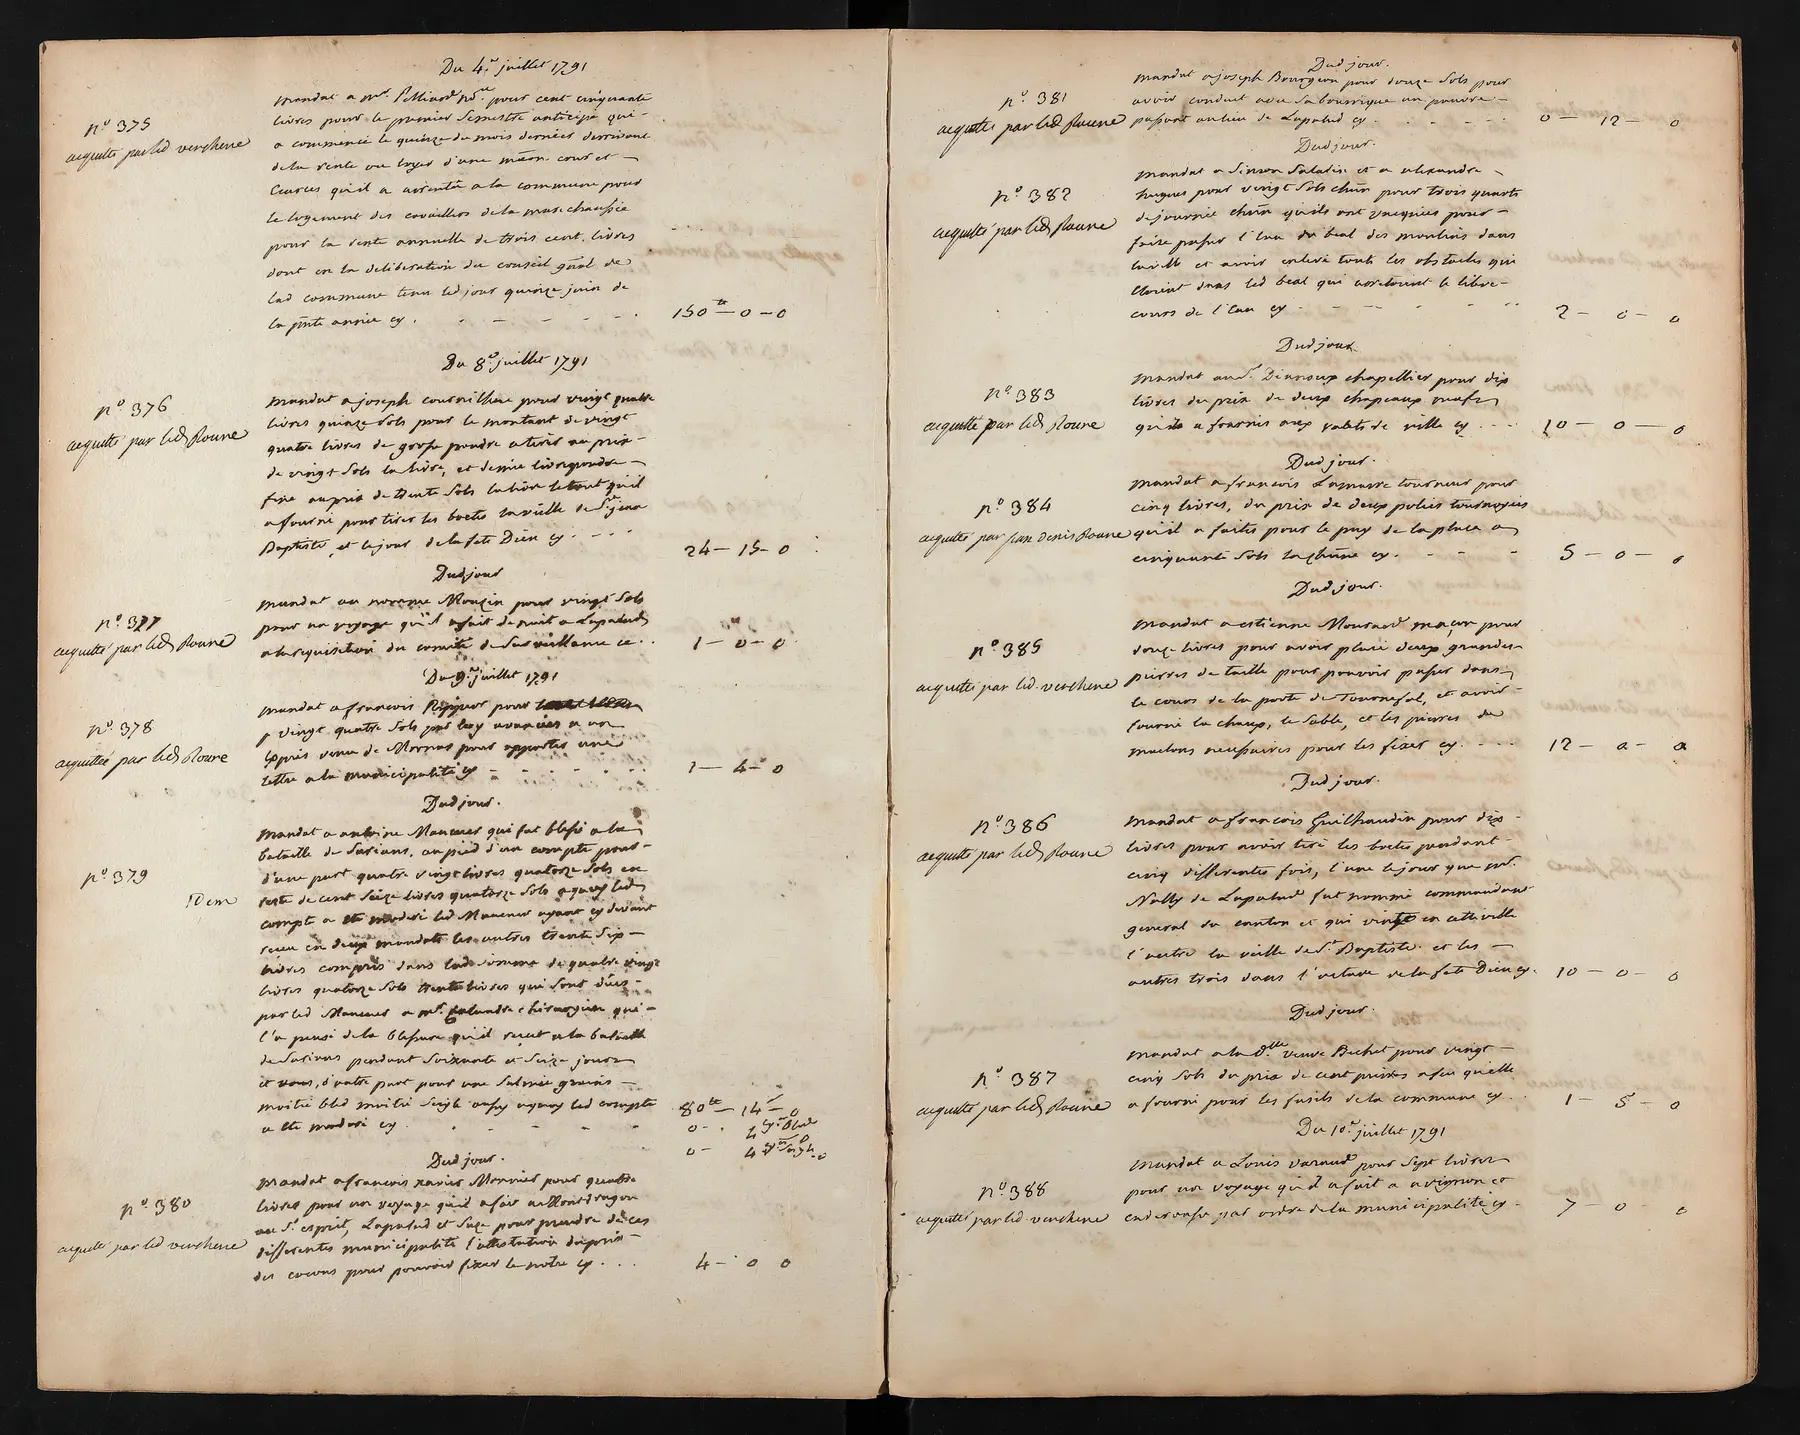 Du 4e juillet 1791
n° 375
acquitté par led verchene
Mandat a mr. Pelliard pour cent cinquante
livres pour le premier semestre anticipé qui
a commencé le quinze du mois dernier derrivant
de la rente ou loyer d'une maison cour et
qu'il a arrenté a la commune pour
le logement des cavailliers de la marechaussée
pour la rente annuelle de trois cent livres
dont en la deliberation du conseil gnãl de
lad commune tenu led jour quinze juin de
la pñte année cy .
150tt — 0 — 0
Du 8e juillet 1791
n° 376
acquitté par led Roure
Mandat a joseph pour vingt quatre
livres quinze sols pour le montant de vingt
quatre livres de grosse poudre a tirer au prix
de vingt sols la livre, et demie livre poudre
fine au prix de trente sols la livre le tout qu'il
a fourni pour tirer les boetes la veille de St jean
Baptiste, et le jour de la fete Dieu cy
24 — 15 — 0
Dud jour
n° 377
acquitté par led Roure
Mandat au nommé Mouzin pour vingt sols
pour un voyage qu'il a fait de nuit a Lapalud
a la requisition du comité de surveillance ce
1 — 0 — 0
Du 9e juillet 1791
n° 378
acquittée par led Roure
Mandat a francois pour
vingt quatre sols par luy avancées a un
Exprés venu de Mornas pour apporter une
lettre a la municipalité cy
1 — 4 — 0
Dud jour.
n° 379
IDem
Mandat a antoine qui fut blessé a la
bataille de Sarians, au pied d'un compte pour
d'une part quatre vingt livres quatorze sols en
reste de cent seize livres quatorze sols a quoy led
compte a eté moderé led ayant cy devant
receu en deux mandats les autres trente six
livres compris dans lad somme de quatre vingt
livres quatorze sols trente livres qui sont dües
par led a mr. chirurgien qui
l'a pensé de la blessure qu'il recut a la bataille
de Sarians pendant soixante et seize jours
et d'autre part pour une salmée grains
moitié bled moitié seigle aussy a quoy led compte
a eté moderé cy .
80tt — 14 — 0
0 — . 4 Bled
0 — 4
Dud jour.
n° 380
acquitté par led verchene
Mandat a francois xavier Monnier pour quatre
livres pour un voyage qu'il a fait au Montdragon
au St esprit, Lapalud et Suze pour prendre de ces
differentes municipalité l'attestation du prix
des cocons pour pouvoir fixer le notre cy . . .
4 — 0 0
Dud jour.
n° 381
acquitté par led Roure
Mandat a joseph Bourgeon pour douze sols pour
avoir conduit avec sa bourrique un pauvre
passant au lieu de Lapalud cy
0 — 12 — 0
Dud jour.
n° 382
acquitté par led Roure
Mandat a Simon Saladin et a alexandre
hugues pour vingt sols chün pour trois quarts
de journée chün qu'ils ont vacquées pour
faire passer l'eau du beal des moulins dans
la ville et avoir enlevé touts les obstacles qui
etoient dans led beal qui arretoient le libre
cours de l'eau cy
2 — 0 — 0
Dud jour.
n° 383
acquitté par led Roure
Mandat au Sr. chapellier pour dix
livres du prix de deux chapeaux neufs
qu'il a fournis aux valets de ville cy
10 — 0 — 0
Dud jour.
n° 384
acquitté par jean denis Roure
Mandat a francois Lamarre tourneur pour
cinq livres, du prix de deux poulies
qu'il a faites pour le puy de la place a
cinquante sols la chüne cy .
5 — 0 — 0
Dud jour.
n° 385
acquitté par led verchene
Mandat a estienne maçon pour
douze livres pour avoir placé deux grandes
pierres de taille pour pouvoir passer dans
le cours de la porte de Tournefol, et avoir
fourni la chaux, le sable, et les pierres de
maclons necessaires pour les fixer cy .
12 — 0 — 0
Dud jour.
n° 386
acquitté par led Roure
Mandat a francois Guilhaudin pour dix
livres pour avoir tiré les boetes pendant
cinq differentes fois, l'une le jour que mr.
Nally de Lapalud fut nommé commandant
general du canton et qui vint en cette ville
l'autre la veille de St Baptiste et les
autres trois dans l'octave de la fete Dieu cy
10 — 0 — 0
Dud jour.
n° 387
acquitté par led Roure
Mandat a la dlle veuve Bechet pour vingt
cinq sols du prix de cent pierres a feu qu'elle
a fourni pour les fusils de la commune cy
1 — 5 — 0
Du 10e juillet 1791
n° 388
acquitté par led verchene
Mandat a Louis pour sept livres
pour un voyage qu'il a fait a avignon et
par ordre de la municipalité cy
7 — 0 — 0